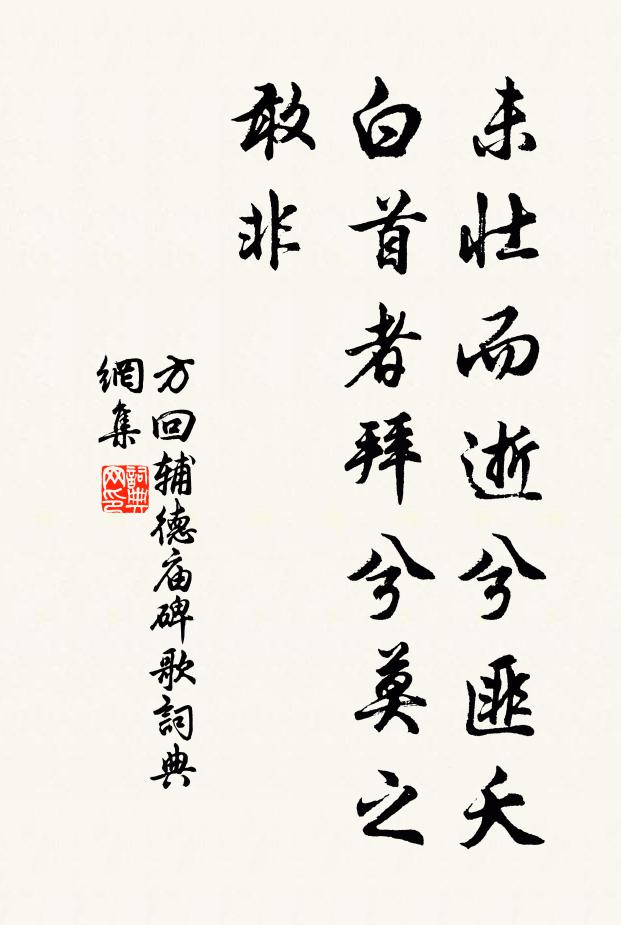 未壮而逝兮匪夭
白首者拜兮莫之
敢非
方回辅德庙碑歌詞典
網集
詞典
网印